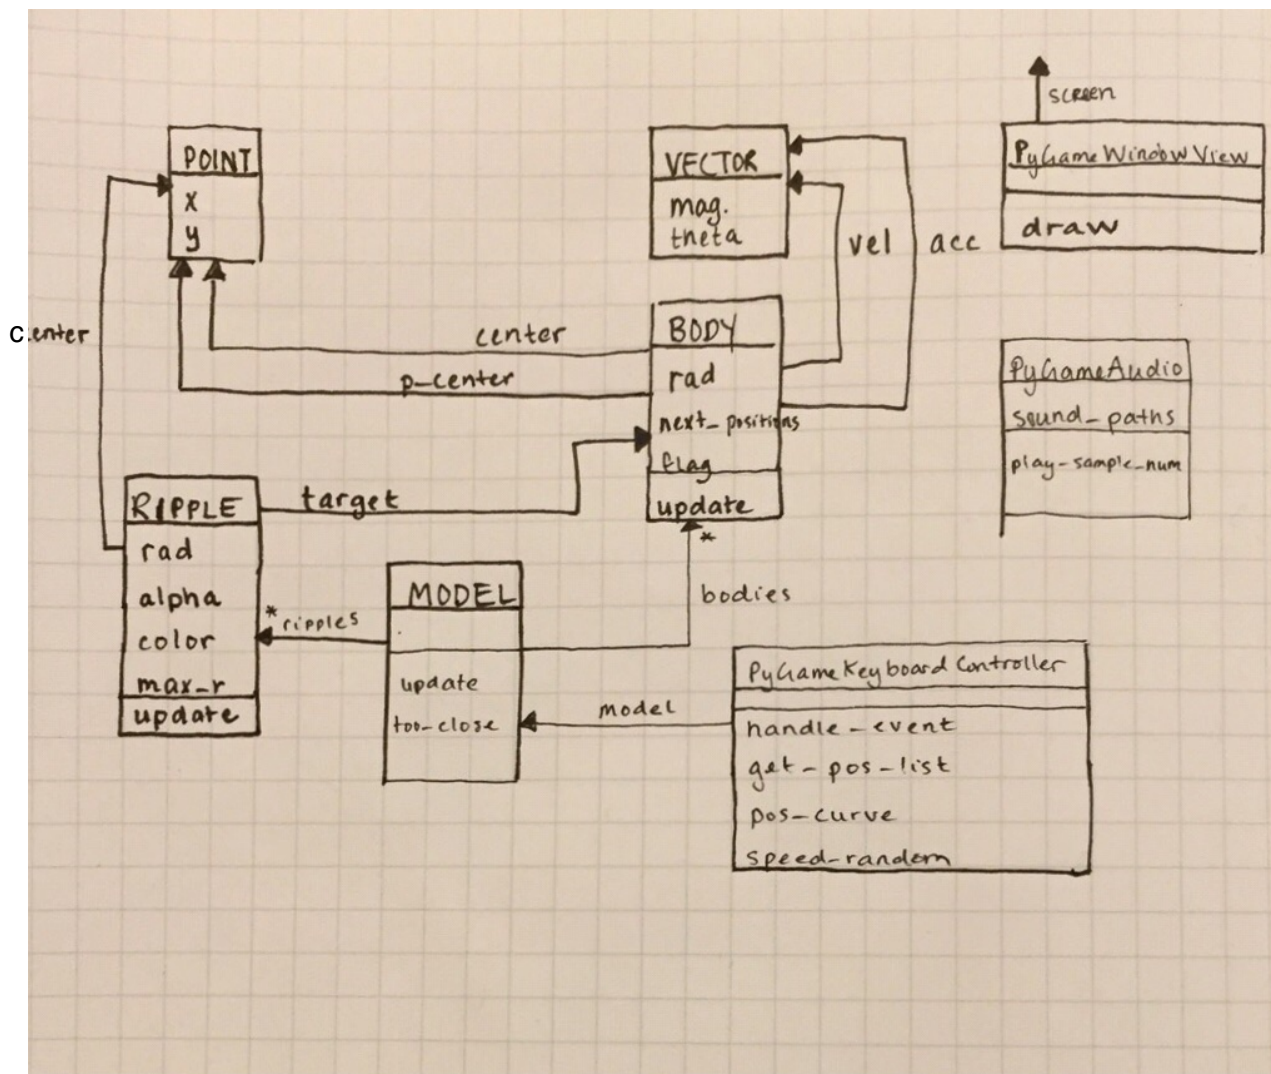 screen
POINT
x
y
VECTOR
mag.
theta
PyGameWindowView
draw
vel
acc
center
center
p-center
BODY
rad
next_positions
flag
update
*
bodies
PyGameAudio
sound_paths
play-sample-num
RIPPLE
rad
alpha
color
max-r
update
target
* ripples
MODEL
update
too-close
model
PyGameKeyboardController
handle-event
get-pos-list
pos-curve
speed-random